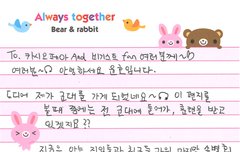 Always together
Bear & rabbit
To. 카시오페아 And 비기스트 fan 여러분께~
여러분~ 안녕하세요 윤호입니다.
드디어 제가 군대를 가게 되었네요~ 이 편지를
볼때 쯤에는 전 군대에 들어가, 훈련을 받고
있겠지요??